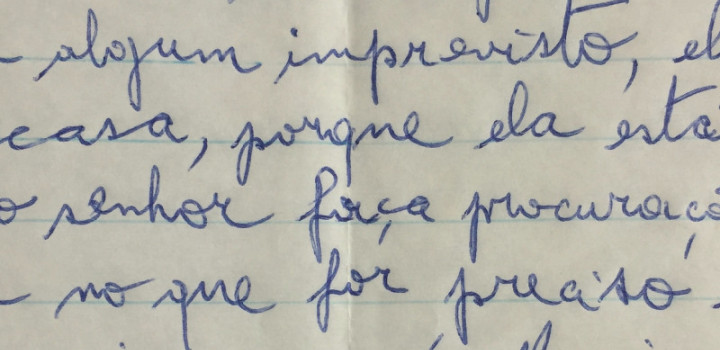 algum imprevisto, el
casa, porque ela está
o senhor faça procuraçõ
no que fôr preciso